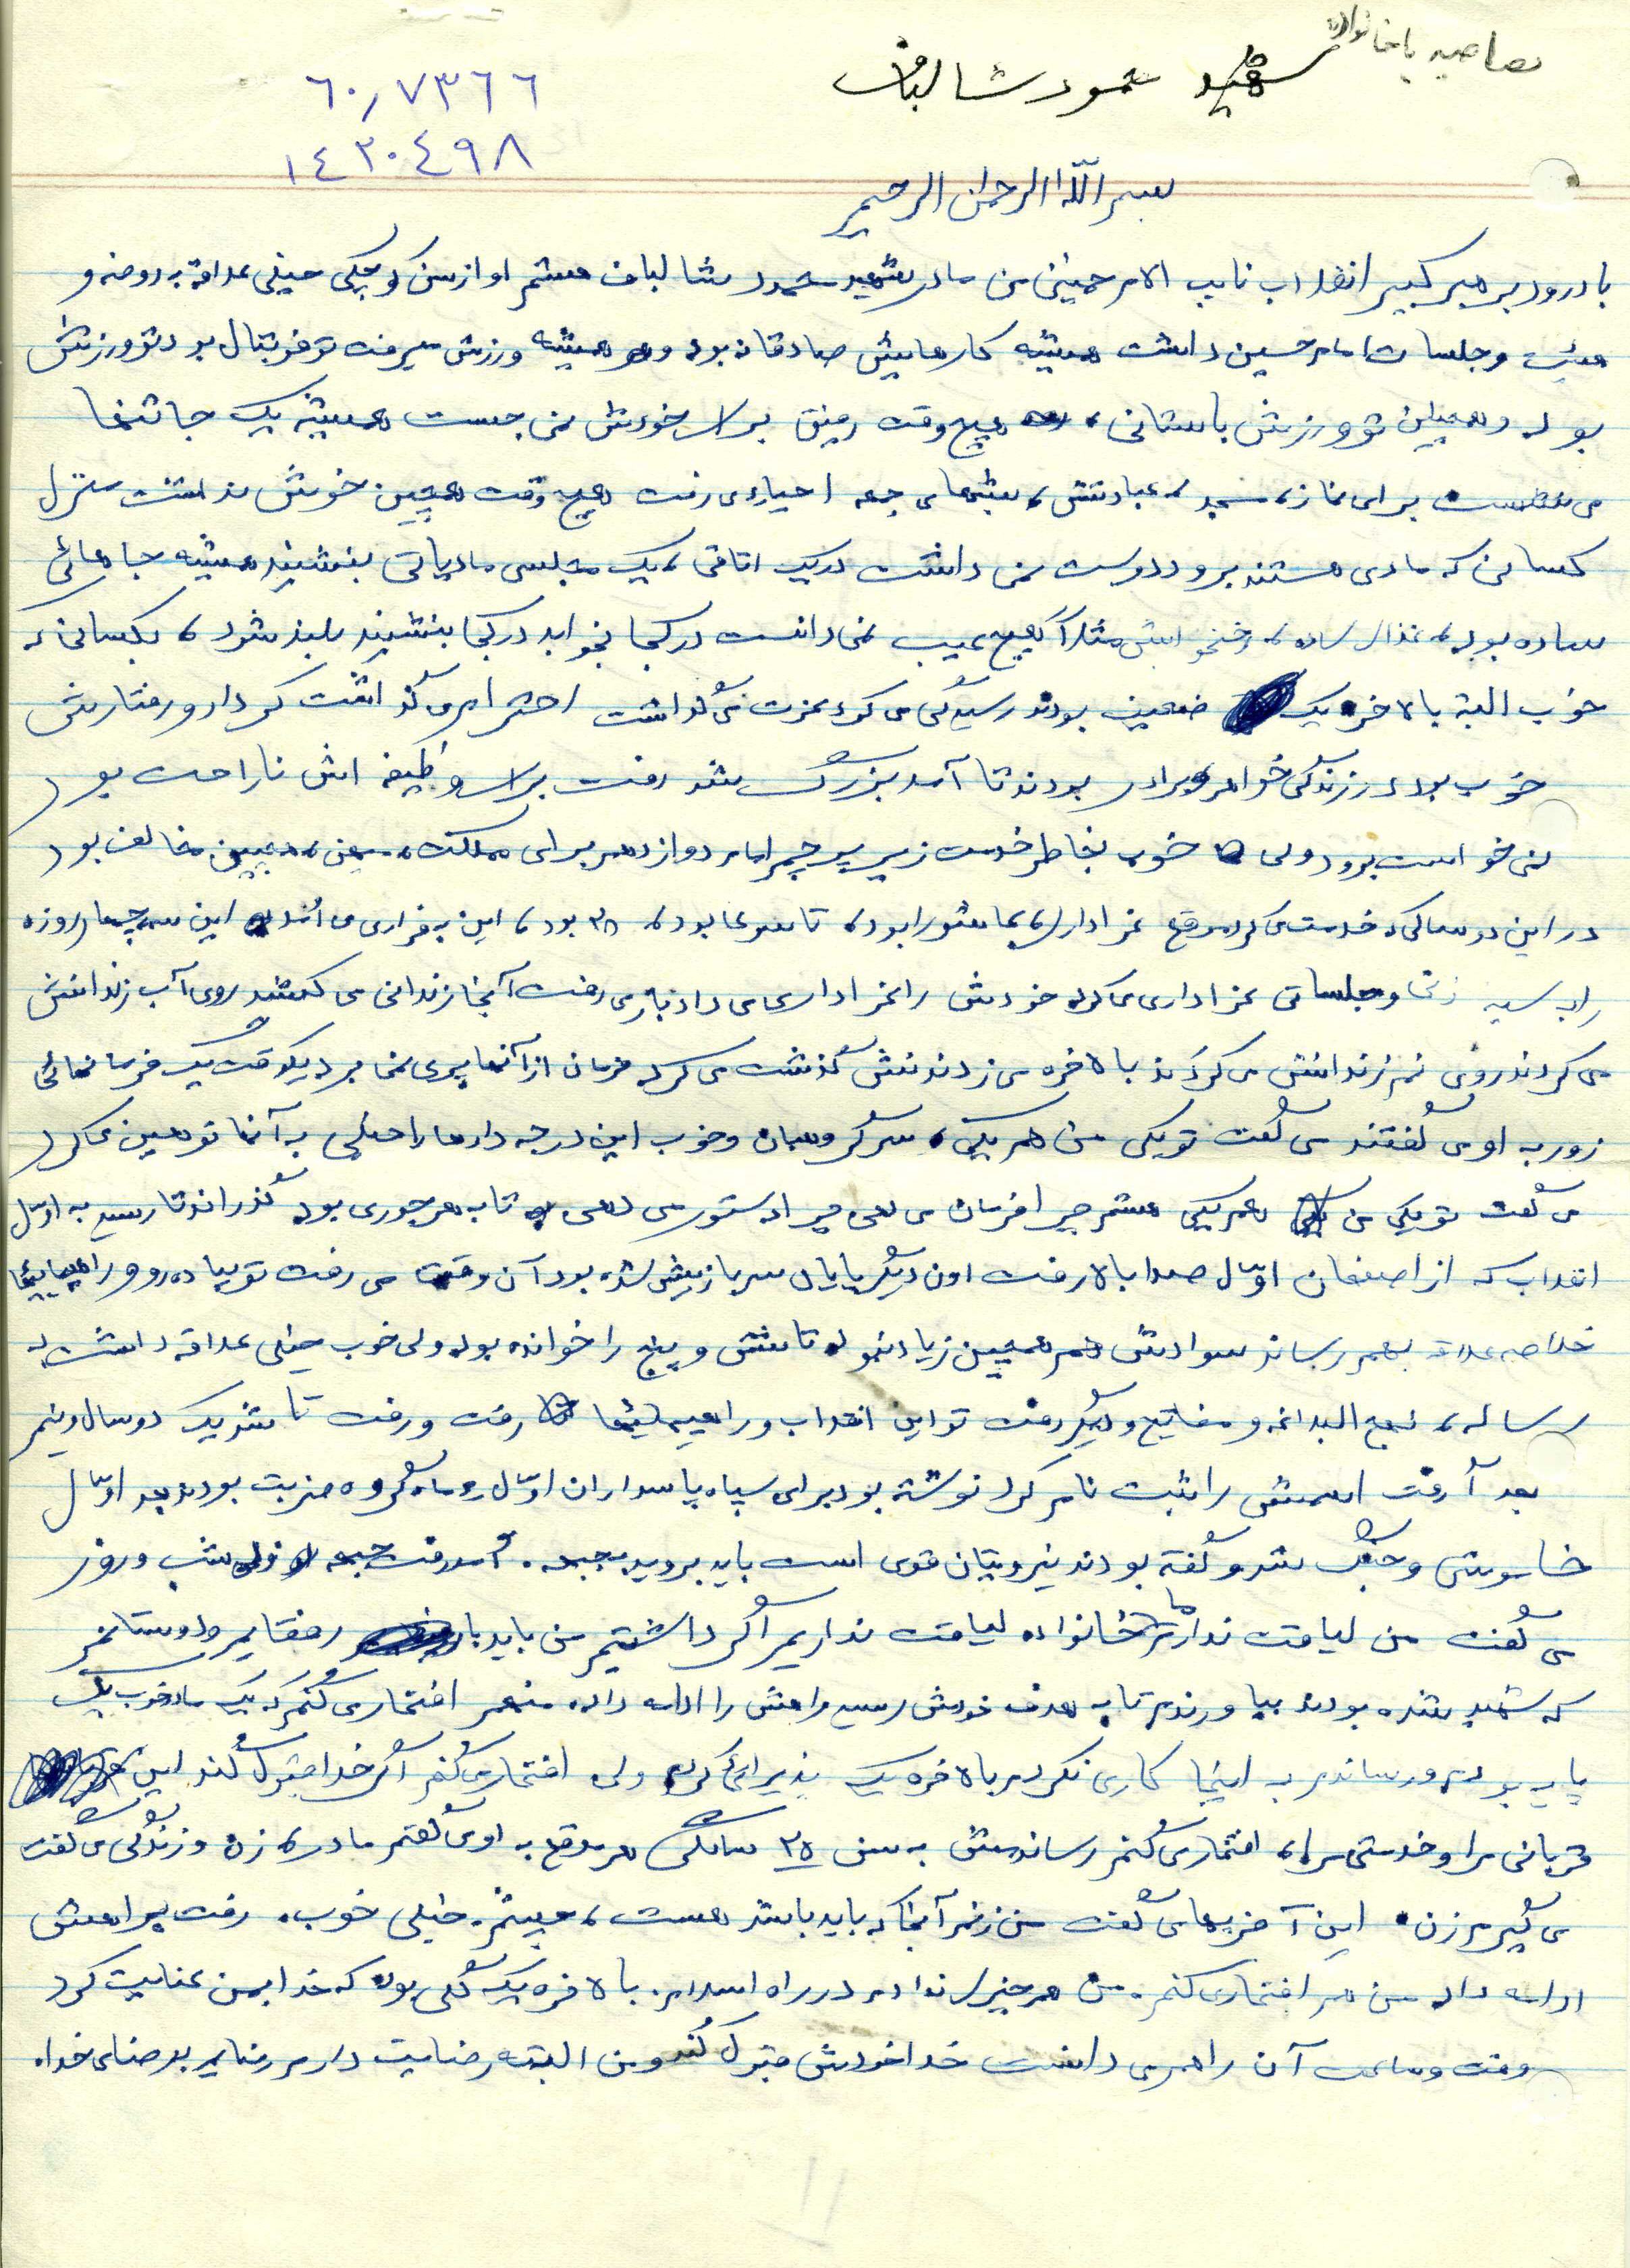 مصاحبه با خانواده
شهید محمود شالباف
٦٠/٧٣٦٦
١٤٢٠٤٩٨
بسم الله الرحمن الرحیم
با درود بر رهبر کبیر انقلاب نایب الامام خمینی من مادر شهید محمود شالباف هستم او از سن کوچکی خیلی علاقه به روضه و
هیئت و جلسات امام حسین داشت همیشه کارهایش صادقانه بود و همیشه ورزش میرفت تو فوتبال بود تو ورزش
بود و همچنین تو ورزش باستانی، هیچوقت رفیق برای خودش نمی جست همیشه یک جا تنها
می نشست برای نماز، مسجد، عبادتش، شبهای جمعه احیاء می رفت هیچ وقت همچین خوشش نداشت منزل
کسانی که مادی هستند برود دوست نمی داشت در یک اتاقی، یک مجلسی مادیاتی بنشیند همیشه جاهائی
ساده بود، غذای ساده، مثلاً هیچ عیب نمی دانست در کجا بخوابد در کجا بنشیند بلند شود، بکسانی که
خوب البته بالاخره یک ضعیف بودند رسیدگی می کرد عزت می گذاشت احترام می گذاشت کردار و رفتارش
خوب بود در زندگی خواهر و برادر بودند تا آمد بزرگ شد رفت برای وظیفه اش ناراحت بود
نمی خواست برود ولی خوب بخاطر خدمت زیر پرچم امام دوازدهم برای مملکت، میهن، همچین مخالف بود
در این دو سالی که خدمت می کرد موقع عزاداری، عاشورا بود، تاسوعا بود، ٢٨ بود، این به فراری می آمد این سه چهار روزه
را به سینه زنی و جلسات عزاداری می کرد خودش را عزاداری می داد باز می رفت آنجا زندانی می کشید روی آب زندانش
می کردند روی نم زندانش می کردند بالاخره می زدندش گذشت می کرد فرمان از آنها پیروی نمی برد یکوقت یک فرمانهائی
زور به او می گفتند می گفت تو یکی من هم یکی، سرگروهبان و خوب این درجه دارها را خیلی به آنها توهین می کرد
می گفت تو یکی من هم یکی هستم چرا فرمان می دهی چرا دستور می دهی تا به هر جوری بود گذراند تا رسید به اوّل
انقلاب که از اصفهان اوّل صدا بالا رفت اون دیگر پایان سربازیش شده بود آن وقت می رفت تو پیاده رو و راهپیمائیها
خلاصه علاقه بهم رساند سوادش هم همچین زیاد نبود تا شش و پنج را خوانده بود ولی خوب خیلی علاقه داشت به
رساله، نهج البلاغه و مفاتیح و دیگر رفت تو این انقلاب و راهپیمائیها رفت و رفت تا نزدیک دو سال و نیم
بعد آ رفت اسمش را ثبت نام کرد نوشته بود برای سپاه پاسداران اوّل رو ماه گروه ضربت بودند بعد اوّل
خاموشی و جنگ شد و گفته بودند نیرویتان قوی است باید بروید بجبهه. آمد رفت جبهه شب و روز
می گفت من لیاقت ندارم ما خانواده لیاقت نداریم اگر داشتیم من باید با رفقایم و دوستانم
که شهید شده بودند بیاورندم تا به هدف خودش رسید راهش را ادامه داد. منهم افتخار می کنم که یک مادر خوب یک
پایه بودم و رساندم به اینجا کاری نکردم بالاخره یک پذیرائی کردم ولی افتخار می کنم اگر خدا قبول کند این
قربانی مرا و خدمتی مرا، افتخار می کنم رساندمش به سن ٢٥ سالگی هر موقع به او می گفتم مادر، زن و زندگی می گفت
می گیرم زن. این آخریها می گفت من زنم آنجا که باید باشد هست، خیلی خوب. رفت راهش
ادامه داد من هم افتخار می کنم. من هر چیز ندادم در راه اسلام. بالاخره یک گلی بود که خدا بمن عنایت کرد
وقت و ساعت آن را هم می دانست خدا خودش قبول کند و من البته رضایت دارم رضایم به رضای خدا.